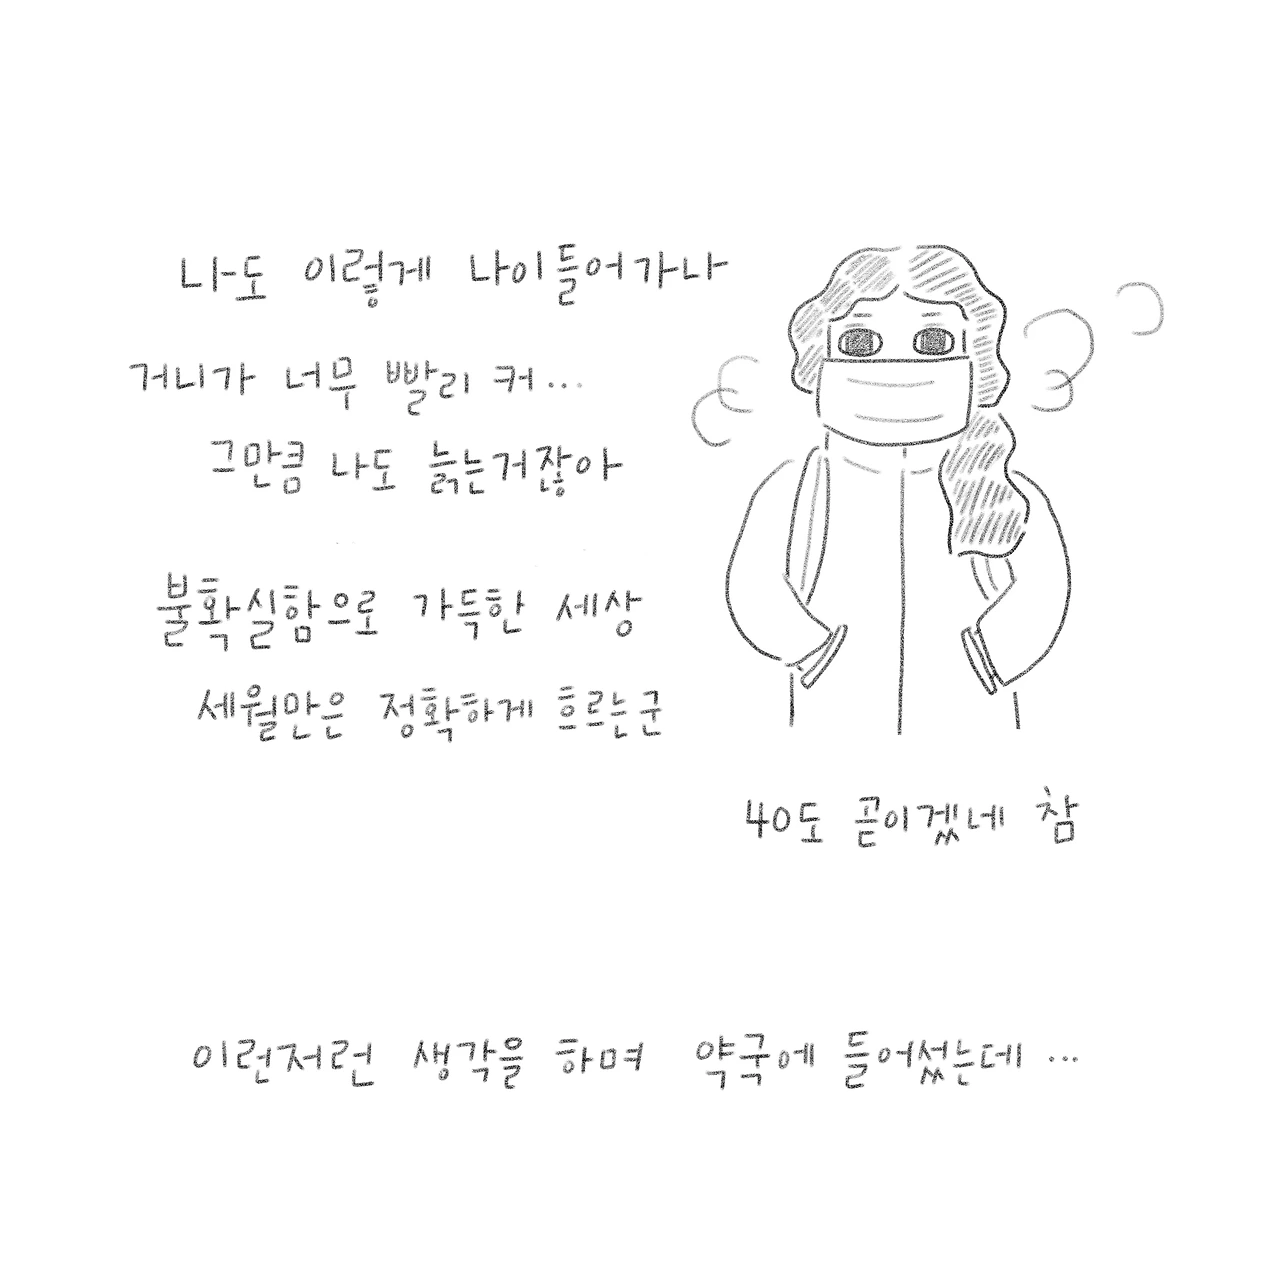 나도 이렇게 나이들어가나
거니가 너무 빨리 커...
그만큼 나도 늙는거잖아
불확실함으로 가득한 세상
세월만은 정확하게 흐르는군
40도 곧이겠네 참
이런저런 생각을 하며 약국에 들어섰는데...